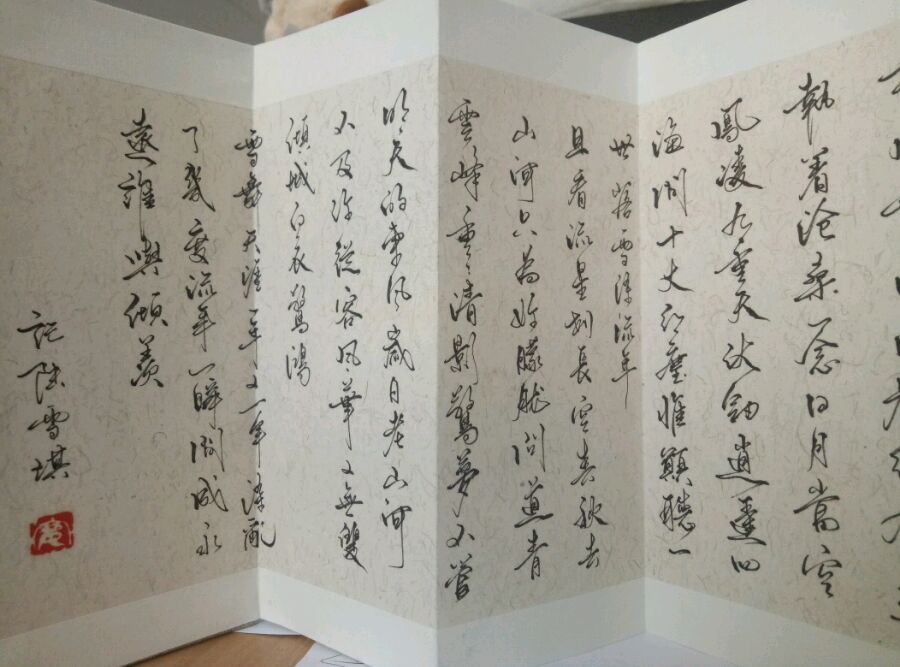 執着滄桑一念日月當空
鳳凌九重天訣劍逍遙四
海問十丈紅塵惟願聽一
世雪染流年
且看流星划長空春秋去
山河只為朦朧問道青
雲峰重重清影驚夢不管
明天的東風歲月老山河
不及你從容風華又無雙
傾城白衣驚鴻
雪舞天涯年又一年染亂
了幾度流年一瞬間成永
遠誰與傾羨
記陸雪琪